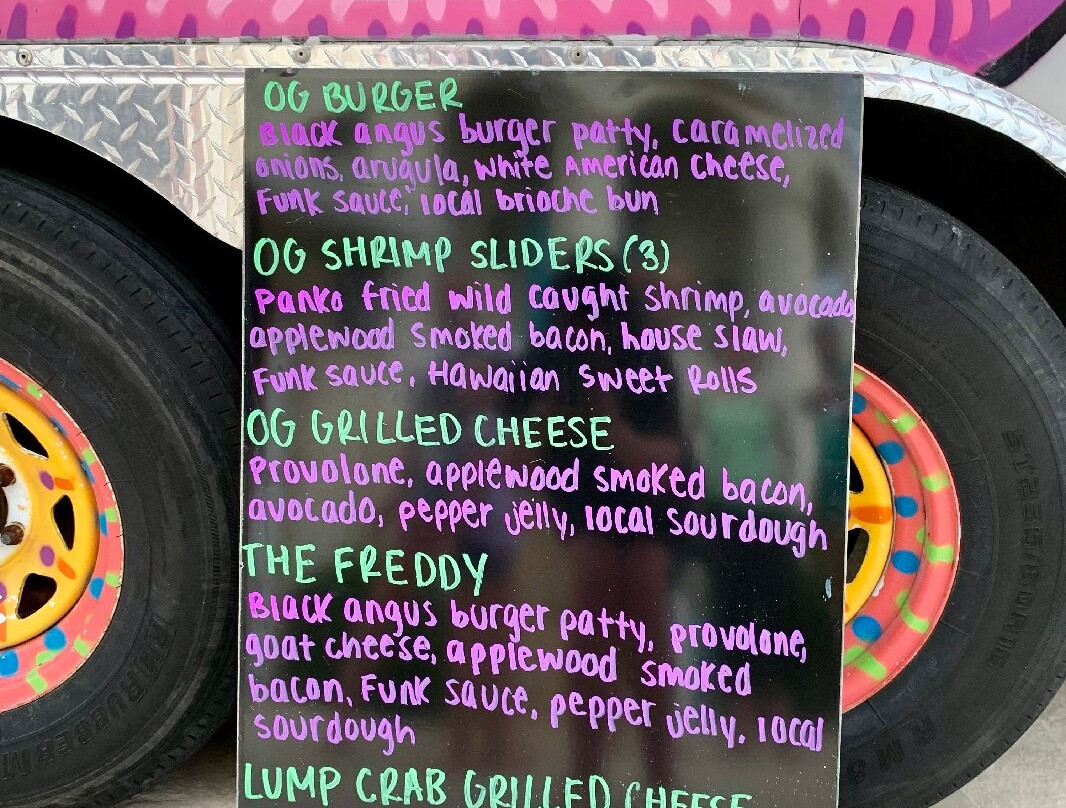 OG BURGER
Black angus burger patty, caramelized
onions, arugula, white American cheese,
Funk sauce, local brioche bun
OG SHRIMP SLIDERS (3)
Panko fried wild caught shrimp, avocado,
applewood smoked bacon, house slaw,
Funk sauce, Hawaiian sweet Rolls
OG GRILLED CHEESE
Provolone, applewood smoked bacon,
avocado, pepper jelly, local sourdough
THE FREDDY
Black angus burger patty, provolone,
goat cheese, applewood smoked
bacon, Funk sauce, pepper jelly, local
sourdough
LUMP CRAB GRILLED CHEESE